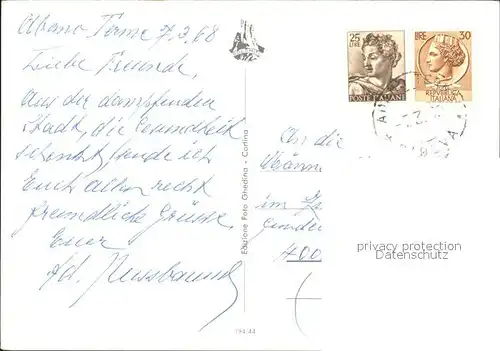 Abano Terme 7.3.68
Liebe Freunde,
Aus der dampfenden
Stadt, die Gesundheit
schenkt, sende ich
Euch allen recht
freundliche Grüsse.
Euer
Ad. Nussbaum
Edizione Foto Ghedina - Cortina
194/44
25
LIRE
POSTE ITALIANE
LIRE 30
REPUBBLICA
ITALIANA
An die
Männ
im
400
privacy protection
Datenschutz